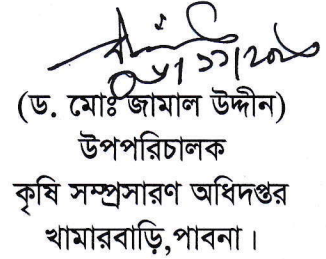 (ড. মোঃ জামাল উদ্দীন)
উপপরিচালক
কৃষি সম্প্রসারণ অধিদপ্তর
খামারবাড়ি,পাবনা।